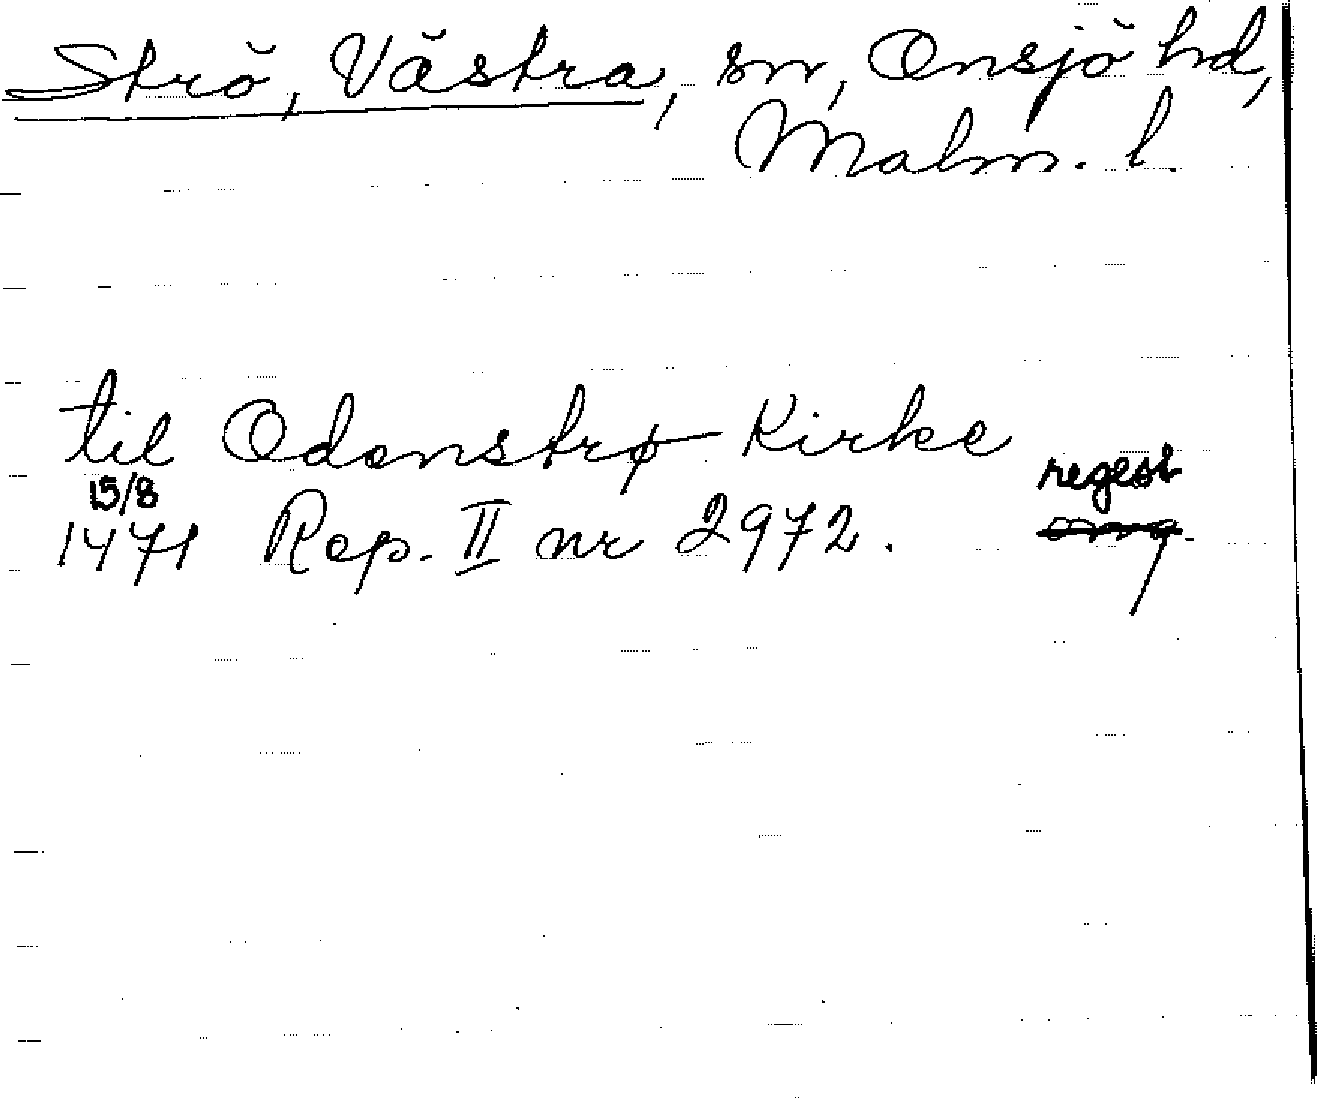 Strö, Västra, sn, Onsjö hd,
Malm. l.
til Odenstrø Kirke
15/8 regest
1471 Rep. II nr 2972. omg.